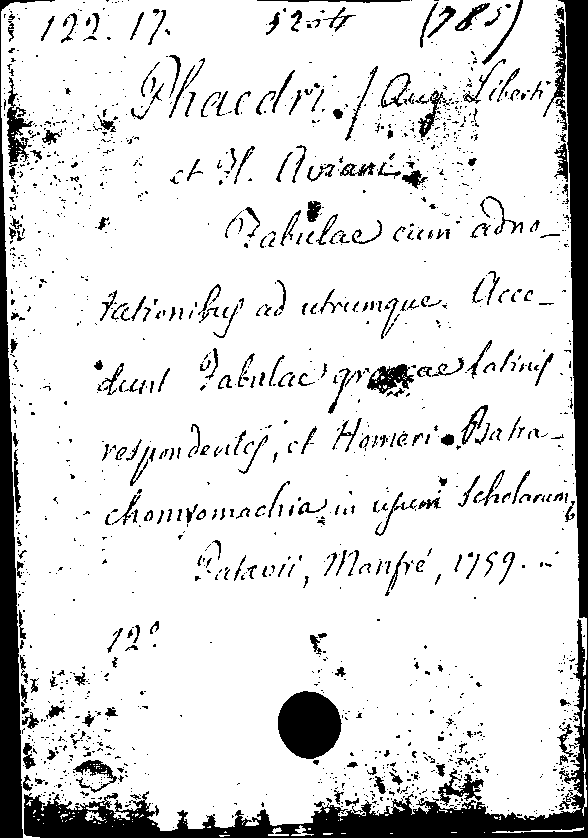 122. 17. (785)
Phaedri. / Aug. Liberti,
et Fl. Aviani
Fabulae cum adno-
tationibus ad utrumque. Acce-
dunt Fabulae graecae latinis
respondentes, et Homeri Batra-
chomyomachia in usum Scholarum,
Patavii, Manfré, 1759.
12º